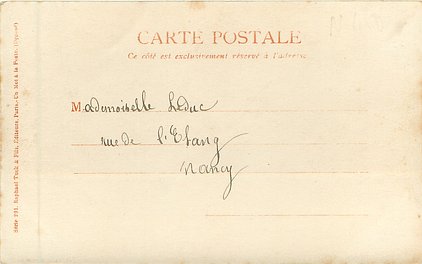 CARTE POSTALE
Ce côté est exclusivement réservé à l'adresse
Mademoiselle Leduc
rue de l'Etang
Nancy
Raphael Tuck & Fils, Editeurs, Paris.